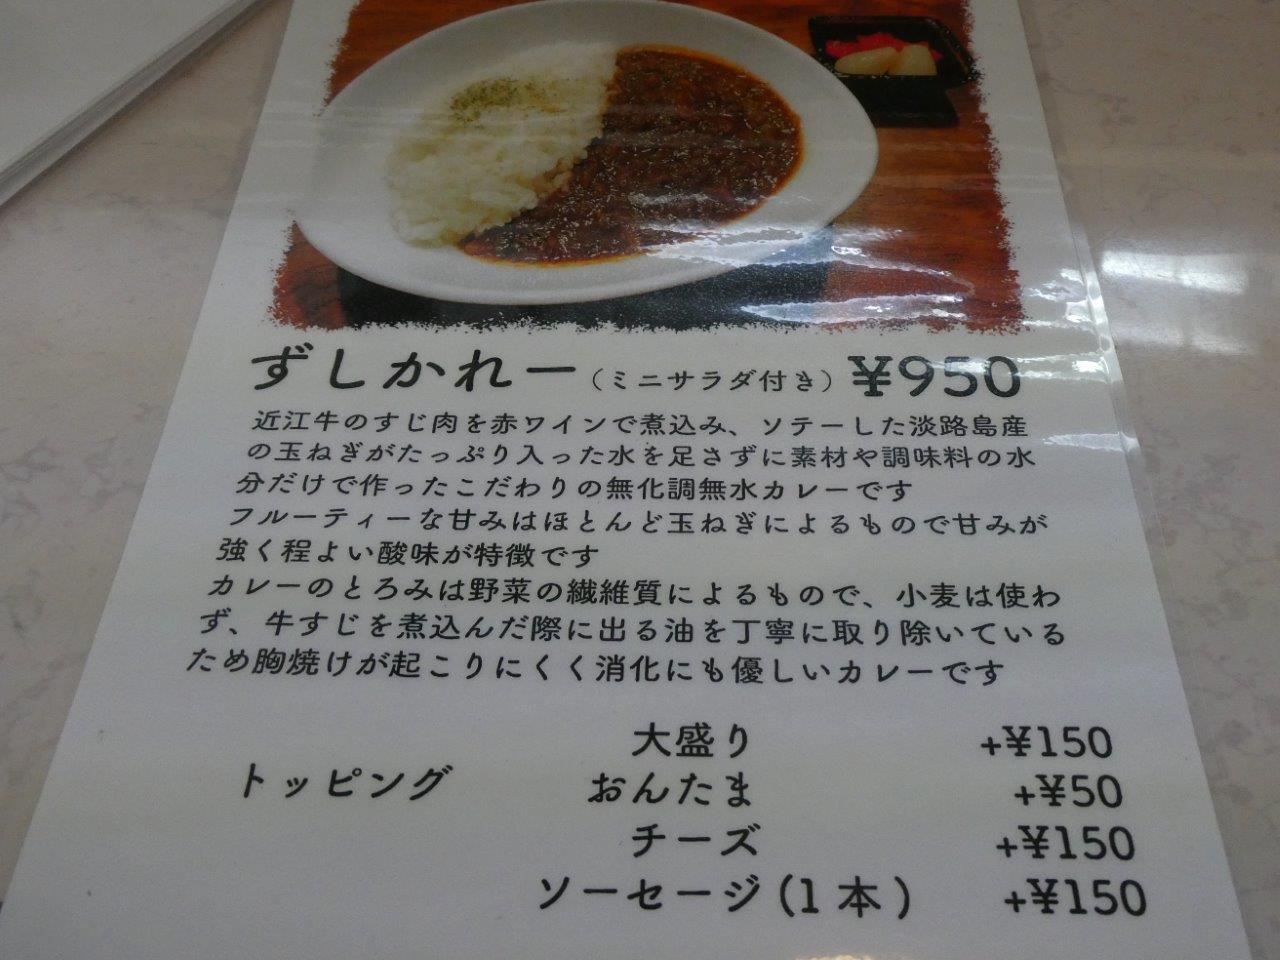 ずしかれー（ミニサラダ付き）¥950
近江牛のすじ肉を赤ワインで煮込み、ソテーした淡路島産
の玉ねぎがたっぷり入った水を足さずに素材や調味料の水
分だけで作ったこだわりの無化調無水カレーです
フルーティーな甘みはほとんど玉ねぎによるもので甘みが
強く程よい酸味が特徴です
カレーのとろみは野菜の繊維質によるもので、小麦は使わ
ず、牛すじを煮込んだ際に出る油を丁寧に取り除いている
ため胸焼けが起こりにくく消化にも優しいカレーです
大盛り +¥150
トッピング おんたま +¥50
チーズ +¥150
ソーセージ(1本) +¥150